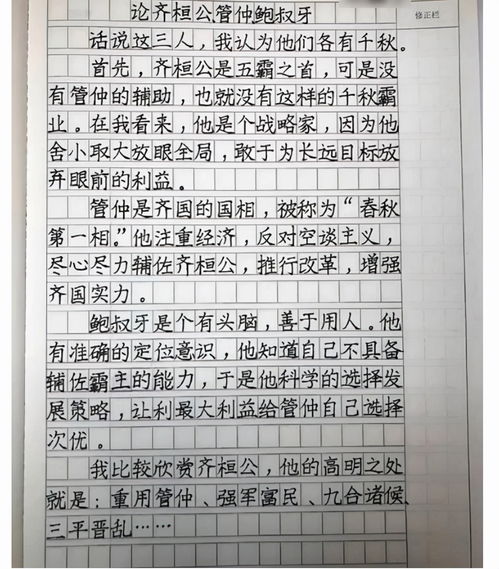 论齐桓公管仲鲍叔牙
修正栏
话说这三人，我认为他们各有千秋。
首先，齐桓公是五霸之首，可是没
有管仲的辅助，也就没有这样的千秋霸
业。在我看来，他是个战略家，因为他
舍小取大放眼全局，敢于为长远目标放
弃眼前的利益。
管仲是齐国的国相，被称为“春秋
第一相。”他注重经济，反对空谈主义，
尽心尽力辅佐齐桓公，推行改革，增强
齐国实力。
鲍叔牙是个有头脑，善于用人。他
有准确的定位意识，他知道自己不具备
辅佐霸主的能力，于是他科学的选择发
展策略，让利最大利益给管仲自己选择
次优。
我比较欣赏齐桓公，他的高明之处
就是：重用管仲、强军富民、九合诸候、
三平晋乱……